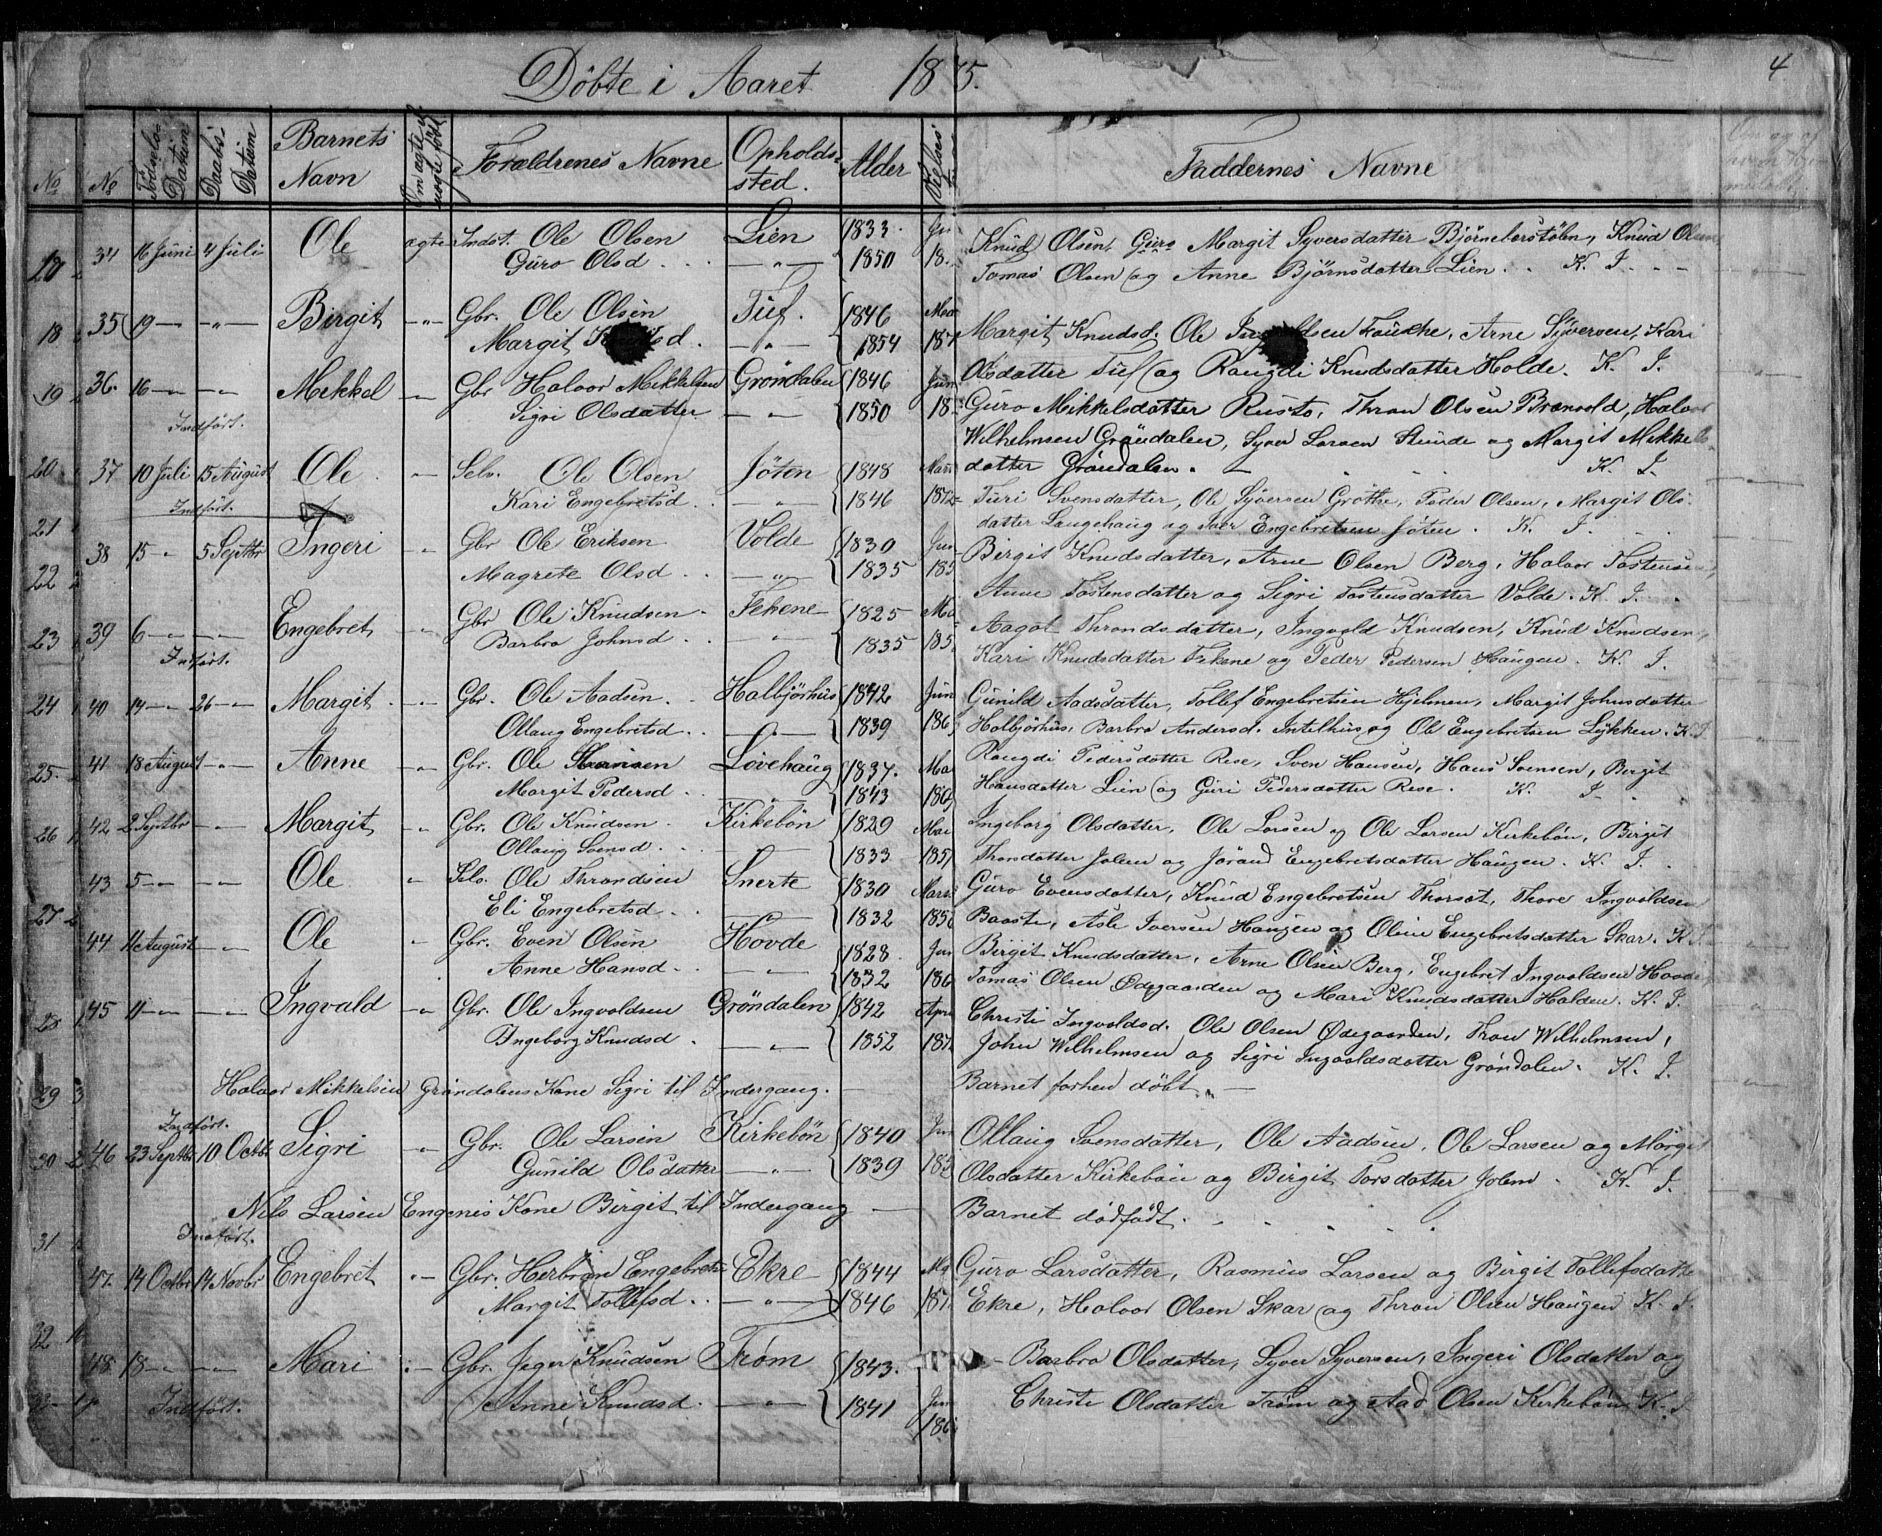 Döbte i Aaret 1875.
4
No
No
Födsels Datum
Daabs Datum
Barnets Navn
Om ægte el. uægte født
Forældrenes Navne
Opholdssted.
Alder
Faddernes Navne
34 16 Juni 4 Juli Ole ægte Indst. Ole Olsen Lien 1833. Knud Olsen, Guro Margit Syversdatter Björneberstölen, Knud Olsen
Guro Olsd. 1850 18. Tomas Olsen og Anne Björnsdatter Lien. K. I.
18 35 19 — — Birgit — Gbr. Ole Olsen Tuf. 1846 Margit Knudsd, Ole Fauske, Arne Syversen, Kari
Margit 1854 187 Olsdatter Tuf og Rangdi Knudsdatter Holde. K. I.
19 36. 16 — — Mekkel — Gbr Halvor Mikkelsen Gröndalen 1846 Jun
Sigri Olsdatter 1850 18 Guro Mikkelsdatter Rusto, Thron Olsen Brænvold, Halvor
Indfört.
Wilhelmsen Gröndalen, Syver Larsen Stunde og Margit Mekkels
datter Gröndalen. K. I.
20 37 10 Juli 15 August Ole — Selv. Ole Olsen Jöten 1848
Indfört. Kari Engebretsd. 1846 1872 Turi Svensdatter, Ole Syversen Gröthe, Peder Olsen, Margit Ols
21 datter Langehaug og Engebretsen Jöten. K. I.
38 15 — 5 Septbr Ingeri — Gbr Ole Eriksen Volde 1830 Jun Birgit Knudsdatter, Arne Olsen Berg, Halvor Tostensen,
22 Magrete Olsd. 1835 185 Anne Tostensdatter og Sigri Tostensdatter Volde. K. I.
23 39 6 — — Engebret — Gbr Ole Knudsen Fekene 1825 Aagot Throndsdatter, Ingvald Knudsen, Knud Knudsen,
Indfört. Barbro Johnsd. 1835 185 Kari Knudsdatter Fekene og Peder Pedersen Haugen. K. I.
24 40 14 — 26 — Margit — Gbr. Ole Aadsen Halbjörhus 1842 Jun Gunild Aadsdatter, Tollef Engebretsen Hjelmen, Margit Johnsdatter
Ollaug Engebretsd. 1839 186 Holbjörhus, Barbro Andersd. Intelhus og Ole Engebretsen Lykken. K. I.
25. 41 18 August — Anne — Gbr. Ole Hansen Lövehaug 1837. Rangdi Pedersdatter Rese, Sven Hansen, Hans Svensen, Birgit
Margit Pedersd. 1843 186 Hansdatter Lien og Guri Pedersdatter Rese. K. I.
26 42 2 Septbr — Margit — Gbr. Ole Knudsen Kirkebön 1829 Mai Ingeborg Olsdatter, Ole Larsen og Ole Larsen Kirkebön, Birgit
Ollaug Svensd. 1833 185 Thordatter Jolem og Jörand Engebretsdatter Haugen. K. I.
43 5 — — Ole — Selv. Ole Throndsen Snerte 1830 Marts Guro Evensdatter, Knud Engebretsen Thorset, Thore Ingvaldsen
27 Eli Engebretsd. 1832 185 Baaste, Asle Iversen Haugen og Oline Engebretsdatter Skar. K. I.
44 11 August — Ole — Gbr. Even Olsen Hovde 1828. Jun Birgit Knudsdatter, Arne Olsen Berg, Engebret Ingvaldsen Hovde
Anne Hansd. 1832 186 Tomas Olsen Ødegaarden og Mari Knudsdatter Halden. K. I.
28 45 11 — — Ingvald — Gbr. Ole Ingvaldsen Gröndalen 1842 Apri Christi Ingvaldsd. Ole Olsen Ødegaarden, Tron Wilhelmsen,
Ingeborg Knudsd. 1852 187 John Wilhelmsen og Sigri Ingvaldsdatter Gröndalen. K. I.
29 Halvor Mikkelsen Gröndalens Kone Sigri til Indergang. — Barnet forhen döbt. —
Indfört.
30 46 23 Septbr 10 Octbr Sigri — Gbr. Ole Larsen Kirkebön 1840 Jun Ollaug Svensdatter, Ole Aadsen, Ole Larsen og Margit
Gunild Olsdatter 1839 Olsdatter Kirkebön og Birgit Torsdatter Jolem. K. I.
Nils Larsen Engenes Kone Birgit til Indergang — Barnet dödfödt.
31 Indfört.
47. 14 Octbr 14 Novbr Engebret — Gbr. Herbran Engebrets Ekre 1844 Guro Larsdatter, Rasmus Larsen og Birgit Tollefsdatter
Margit Tollefsd. 1846 187. Ekre, Halvor Olsen Skar og Thron Olsen Haugen K. I.
32
48 18 — — Mari — Gbr. Knudsen Tröm 1843. Barbro Olsdatter, Syver Syversen, Ingeri Olsdatter og
33 Indfört. Anne Knudsd. 1841 Jun 186 Christi Olsdatter Tröm og Aad Olsen Kirkebön K. I.